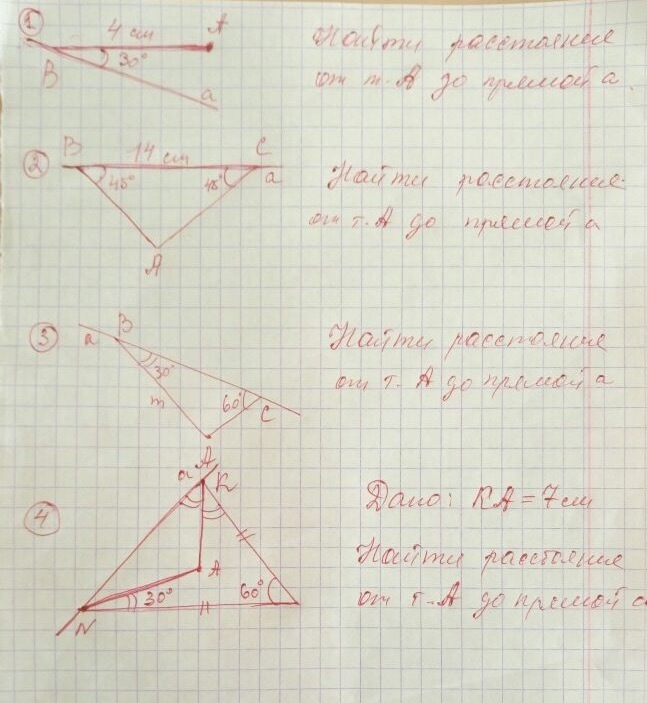 ① 4 см А
30°
В
а
Найти расстояние
от т. А до прямой а.
② В 14 см С
45° 45° а
А
Найти расстояние
от т. А до прямой а
③ а В
30°
60°
m С
А
Найти расстояние
от т. А до прямой а
④ а К
А
30° 60°
N
Дано: КА = 7 см
Найти расстояние
от т. А до прямой а